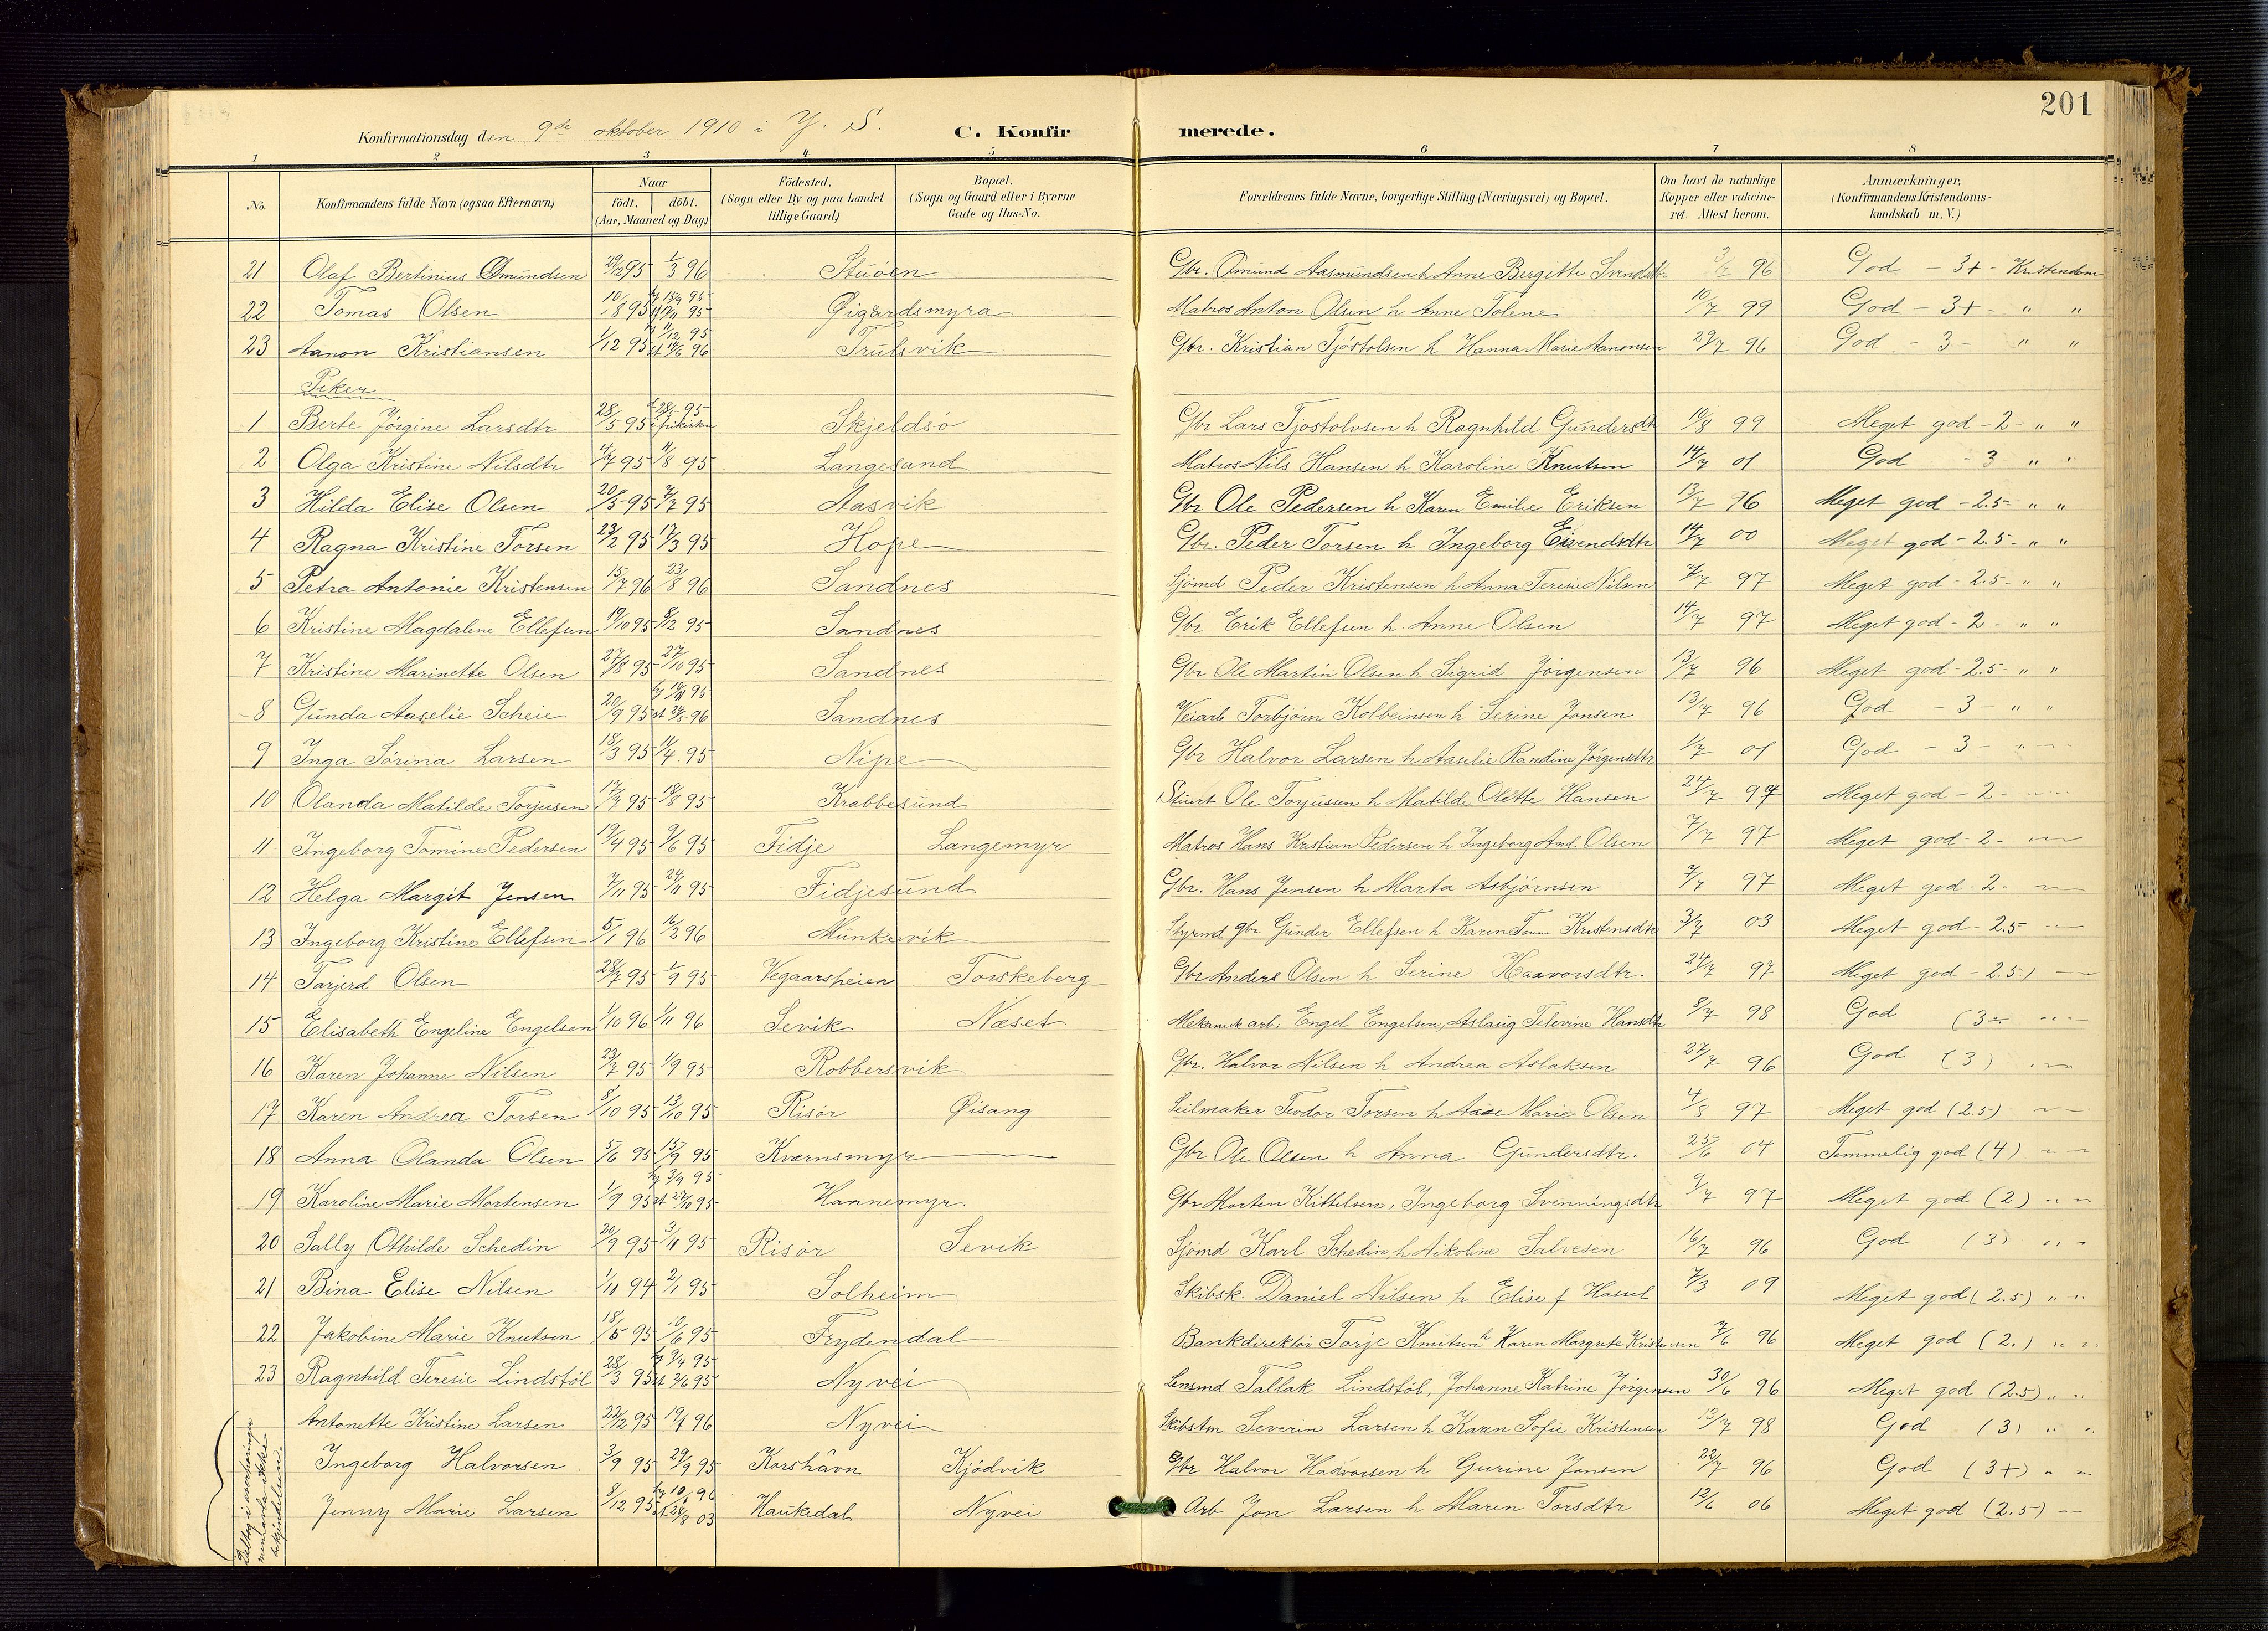 201
Konfirmationsdag den 9de oktober 1910 i Y. S. C. Konfir merede.
1 2 3 4 5 6 7 8
No. Konfirmandens fulde Navn (ogsaa Efternavn) Naar født. døbt. (Aar, Maaned og Dag) Fødested. (Sogn eller By og paa Landet tillige Gaard) Bopæl. (Sogn og Gaard eller i Byerne Gade og Hus-No. Forældrenes fulde Navne, borgerlige Stilling (Næringsvei) og Bopæl. Om havt de naturlige Kopper eller vakcineret. Attest herom. Anmærkninger. (Konfirmandens Kristendomskundskab m. V.)
21 Olaf Bertinius Omundsen 29/12 95 1/3 96 Stuöen Gbr. Omund Aasmundsen h Anne Bergitte Svendsdtr 3/7 96 God - 3+ - Kristendom
22 Tomas Olsen 10/8 95 Øigardsmyra Matros Anton Olsen h Anne Tolene 10/7 99 God - 3+ - " "
23 Aanon Kristiansen 1/12 95 hj 11/12 95 st 14/6 96 Trulsvik Gbr. Kristian Tjöstolsen h Hanna Marie Aanonsen 29/7 96 God - 3 - " "
Piker
1 Berte Jörgine Larsdtr 28/5 95 i frikirken Skjeldsö Gbr Lars Tjostolvsen h Ragnhild Gundersdtr 10/8 99 Meget god - 2 - " "
2 Olga Kristine Nilsdtr 4/7 95 11/8 95 Langesand Matros Nils Hansen h Karoline Knutsen 14/7 01 God - 3 " "
3 Hilda Elise Olsen 20/5 95 7/7 95 Aasvik Gbr Ole Pedersen h Karen Emilie Eriksen 13/7 96 Meget god - 2.5 - " "
4 Ragna Kristine Torsen 23/2 95 17/3 95 Hope Gbr. Peder Torsen h Ingeborg Eivendsdtr 14/7 00 Meget god - 2.5 - " "
5 Petra Antonie Kristensen 15/7 96 23/8 96 Sandnes Sjömd Peder Kristensen h Anna Teresie Nilsen 7/7 97 Meget god - 2.5 - " "
6 Kristine Magdalene Ellefsen 19/10 95 8/12 95 Sandnes Gbr Erik Ellefsen h. Anne Olsen 14/7 97 Meget god - 2 - " "
7 Kristine Marinette Olsen 27/8 95 27/10 95 Sandnes Gbr Ole Martin Olsen h Sigrid Jörgensen 13/7 96 Meget god - 2.5 - " "
8 Gunda Aaselie Scheie 20/9 95 Sandnes Veiarb Torbjörn Kolbeinsen h Serine Jonsen 13/7 96 God - 3 - " "
9 Inga Sörina Larsen 18/3 95 11/4 95 Nipe Gbr Halvor Larsen h Aaselie Randine Jörgensdtr 1/7 01 God - 3 - " "
10 Olanda Matilde Torjusen 17/7 95 18/8 95 Krabbesund Stuert Ole Torjussen h Matilde Olette Hansen 24/7 97 Meget god - 2 - " "
11 Ingeborg Tomine Pedersen 19/4 95 9/6 95 Fidje Langemyr Matros Hans Kristian Pedersen h Ingeborg And. Olsen 7/7 97 Meget god - 2 - " "
12 Helga Margit Jensen 7/11 95 24/11 95 Fidjesund Gbr. Hans Jensen h Marta Asbjörnsen 7/7 97 Meget god - 2 - " "
13 Ingeborg Kristine Ellefsen 5/1 96 16/2 96 Munkevik Styrmd gbr. Gunder Ellefsen h Karen Kristensdtr 3/7 03 Meget god - 2.5 " "
14 Tarjerd Olsen 28/7 95 1/9 95 Vegaarsheien Torskeberg Gbr Anders Olsen h Serine Haavorsdtr. 24/7 97 Meget god - 2.5) " "
15 Elisabeth Engeline Engelsen 1/10 96 1/11 96 Sevik Næset Mekanisk arb: Engel Engelsen, Aslaug Televine Hansdtr 8/7 98 God (3 " "
16 Karen Johanne Nilsen 23/7 95 1/9 95 Robbersvik Gbr. Halvor Nilsen h Andrea Aslaksen 27/7 96 God (3) " "
17 Karen Andrea Torsen 8/10 95 13/10 95 Risör Øisang Seilmaker Teodor Torsen h Aase Marie Olsen 4/3 97 Meget god (2.5) " "
18 Anna Olanda Olsen 5/6 95 15/9 95 Kværnsmyr Gbr Ole Olsen h Anna Gundersdtr. 25/6 04 Temmelig god (4) " "
19 Karoline Marie Mortensen 1/9 95 hj 3/9 95 st 27/10 95 Hannemyr. Gbr Morten Kittelsen, Ingeborg Svenningsdtr 9/7 97 Meget god (2) " "
20 Sally Othilde Schedin 20/9 95 3/11 95 Risör Sevik Sjömd Karl Schedin, h Nikoline Salvesen 16/7 96 God (3) " "
21 Bina Elise Nilsen 1/11 94 2/1 95 Solheim Skibsk. Daniel Nilsen h Elise f Hassel 7/3 09 Meget god (2.5) " "
22 Jakobine Marie Knutsen 18/5 95 10/6 95 Frydendal Bankdirektör Tarje Knutsen h Karen Margrete Kristensen 7/6 96 Meget god (2.) " "
23 Ragnhild Teresie Lindstöl 28/3 95 hj 9/4 95 st 2/6 95 Nyvei Lensmd Tallak Lindstöl, Johanne Katrine Jörgensen 30/6 96 Meget god (2.5) " "
Antonette Kristine Larsen 22/12 95 19/4 96 Nyvei Skibstm Severin Larsen h Karen Sofie Kristensen 13/7 98 God (3) " "
Ingeborg Halvorsen 3/9 95 29/9 95 Korshavn Kjödvik Gbr Halvor Haavorsen h Gurine Jonsen 22/7 96 God (3+) " "
Jenny Marie Larsen 8/12 95 Haukedal Nyvei Arb Jon Larsen h Maren Torsdtr 12/6 06 Meget god (2.5) " "
Deltog i overhöringen men avla ikke